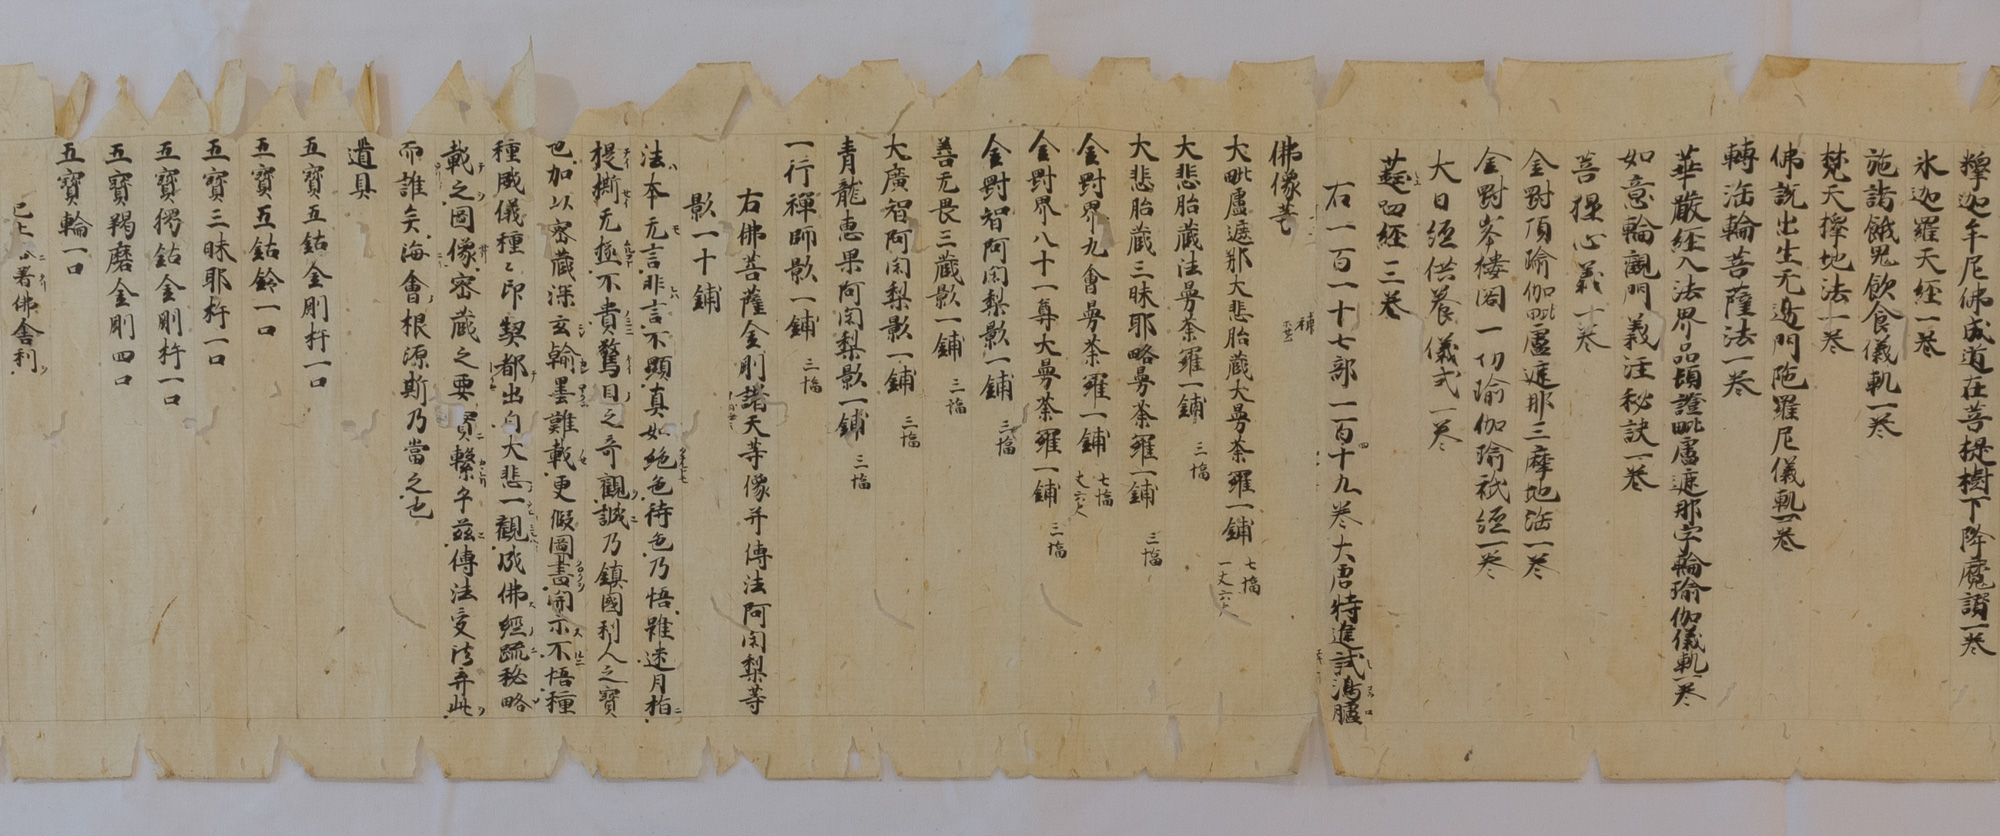 釋迦牟尼佛成道在菩提樹下降魔讃一巻
氷迦羅天經一巻
施諸餓鬼飲食儀軌一巻
梵天擇地法一巻
佛説出生无邊門陁羅尼儀軌一巻
轉法輪菩薩法一巻
華嚴經入法界品頓證毗盧遮那字輪瑜伽儀軌一巻
如意輪觀門義注秘訣一巻
菩提心義一巻
金剛頂瑜伽毗盧遮那三摩地法一巻
金剛峯樓閣一切瑜伽瑜祇經一巻
大日經供養儀式一巻
蕤呬經三巻
右一百一十七部二百四十九巻大唐特進試鴻臚
佛像等
大毗盧遮那大悲胎蔵大曼荼羅一鋪 七幅 一丈六尺
大悲胎蔵法曼荼羅一鋪 三幅
大悲胎蔵三昧耶略曼荼羅一鋪 三幅
金剛界九會曼荼羅一鋪 七幅 丈六尺
金剛界八十一尊大曼荼羅一鋪 三幅
金剛智阿闍梨影一鋪 三幅
善无畏三蔵影一鋪 三幅
大廣智阿闍梨影一鋪 三幅
青龍惠果阿闍梨影一鋪 三幅
一行禪師影一鋪 三幅
右佛菩薩金剛諸天等像并傳法阿闍梨等
影一十鋪
法本无言非言不顯真如絶色待色乃悟雖迷月指
提撕无極不貴驚目之奇觀誠乃鎮國利人之寶
也加以密蔵深玄翰墨難載更假圖畫開示不悟種
種威儀種々印契都出自大悲一觀成佛經疏秘略
載之圖像密蔵之要實繫乎茲傳法受法弃此
而誰矣海會根源斯乃當之也
道具
五寶五鈷金剛杵一口
五寶五鈷鈴一口
五寶三昧耶杵一口
五寶獨鈷金剛杵一口
五寶羯磨金剛四口
五寶輪一口
已上 各著佛舎利